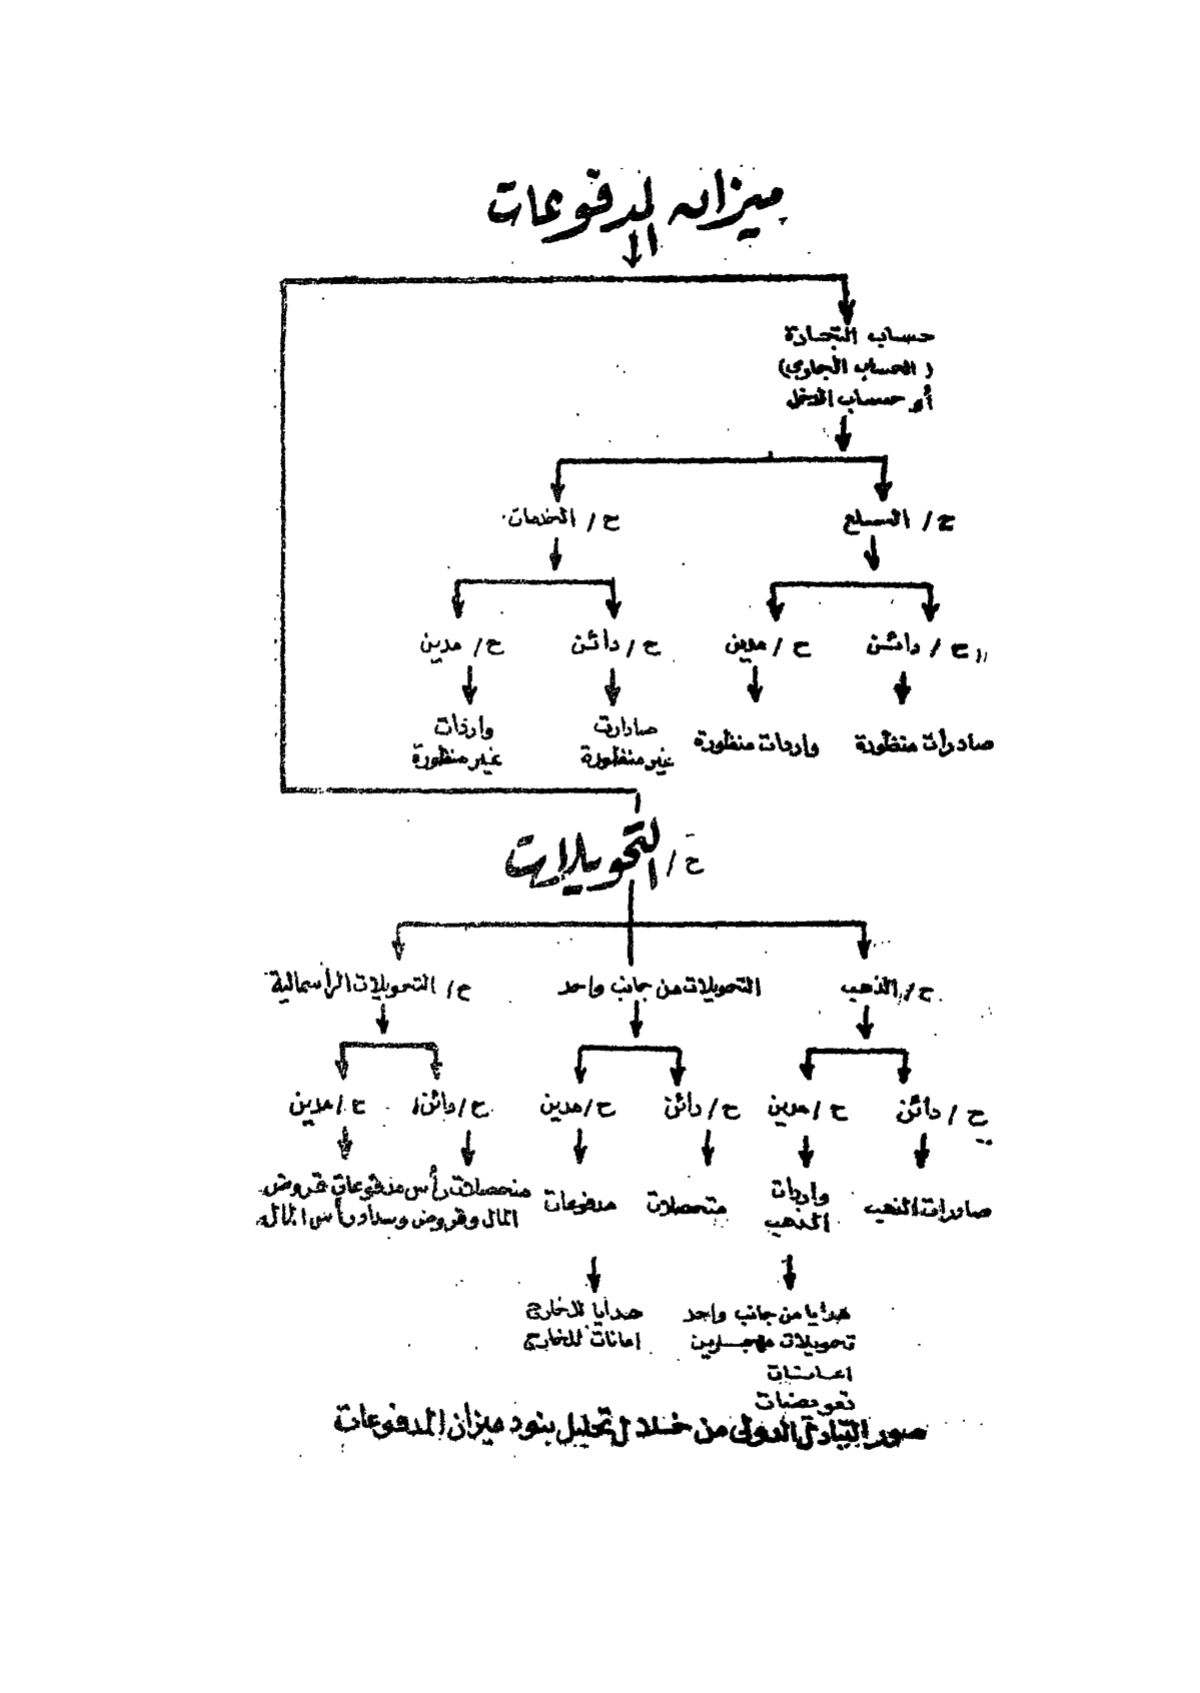 ميزان المدفوعات
حساب التجارة
(الحساب الجاري)
أو حساب الدخل
ح / السلع
ح / الخدمات
ح / دائن
ح / مدين
ح / دائن
ح / مدين
صادرات منظورة
واردات منظورة
صادارت
غير منظورة
واردات
غير منظورة
ح / التحويلات
ح / الذهب
التحويلات من جانب واحد
ح / التحويلات الرأسمالية
ح / دائن
ح / مدين
ح / دائن
ح / مدين
ح / دائن
ح / مدين
صادرات الذهب
واردات
الذهب
متحصلات
مدفوعات
متحصلات رأس مدفوعات قروض
المال وقروض وسداد رأس المال
هدايا من جانب واحد
تحويلات مهجرين
اعانات
تعويضات
هدايا للخارج
اعانات للخارج
صور التبادل الدولى من خلال تحليل بنود ميزان المدفوعات